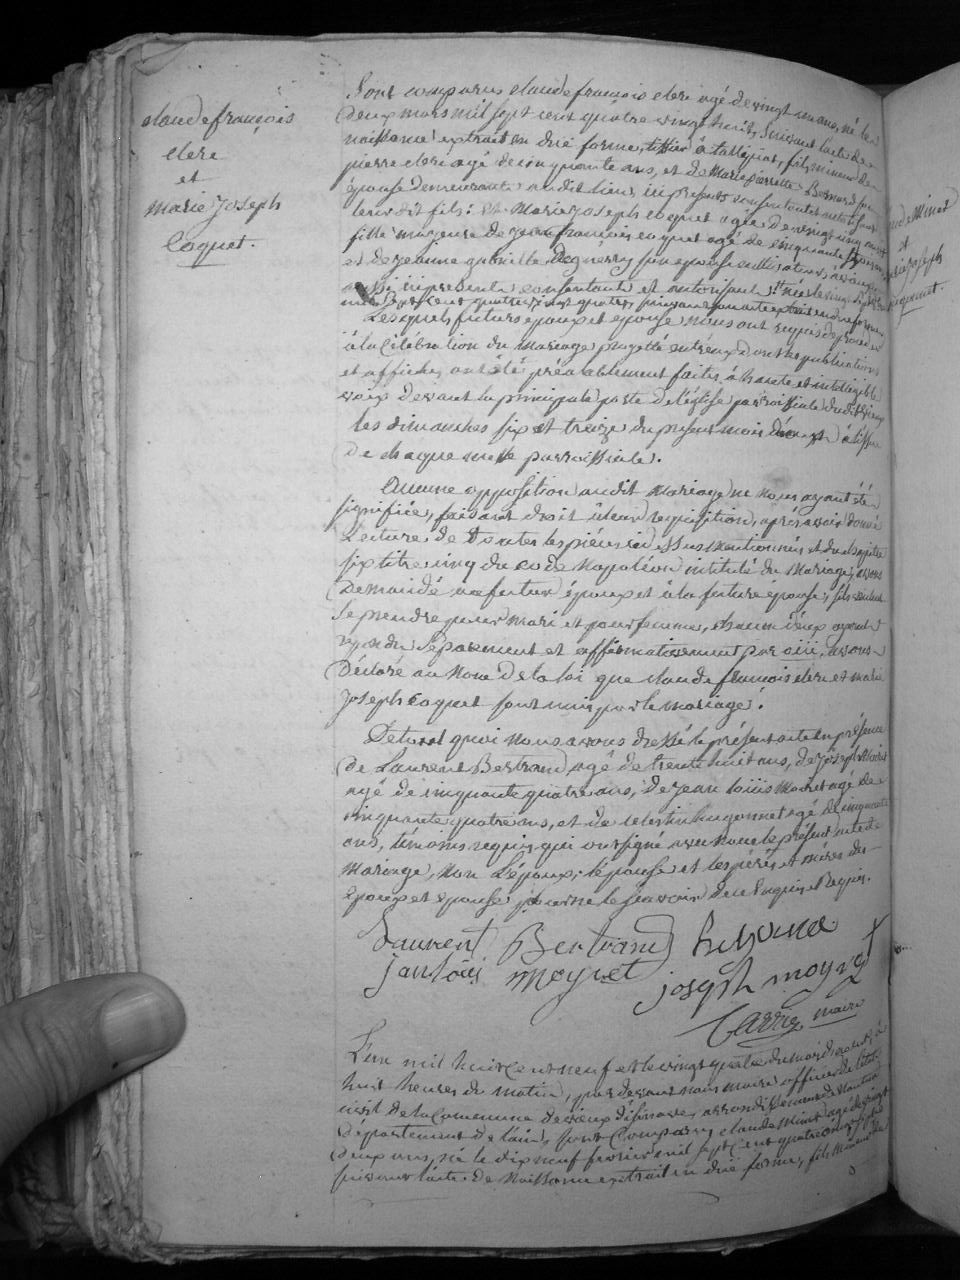 claude françois
clerc
et
marie Joseph
Coquet.
Sont comparus claude francois clerc agé de vingt un ans, né le
deux mars mil sept cent quatre vingt huit, suivant l'acte de
naissance extrait en due forme, tissier à tallipiat, fils mineur de
pierre clerc agé de cinquante ans, et de Marie pierrette Bernard son
épouse demeurants audit lieu, ici presents consentants
leur dit fils: et Marie Joseph coquet agée de vingt cinq ans
fille majeure de jean francois coquet agé de cinquante
et de jeanne gabrielle son epouse cultivateurs à
aussi ici presents consentants et autorisant née le vingt sept
mil sept cent quatre vingt quatre, suivant extrait en due forme
Lesquels futurs epoux et epouse nous ont requis de proceder
à la Celebration du Mariage projetté entr'eux dont les publications
et affiches ont été préalablement faites à haute et intelligible
voix devant la principale porte de l'église parroissiale dudit vieux
les dimanches six et treize du présent mois d'aoust à l'issue
de chaque messe parroissiale.
Aucune opposition audit mariage ne nous ayant été
signifiée, faisant droit à leur requisition, après avoir donné
Lecture de toutes les pièces ci dessus mentionnées et du chapitre
six titre cinq du code Napoléon intitulé du Mariage, avons
Demandé au futur époux et à la future épouse, s'ils veulent
se prendre pour mari et pour femme, chacun d'eux ayant
repondu séparement et affirmativement par oiii, avons
Déclaré au Nom de la loi que claude françois clerc et marie
Joseph Coquet sont unis par le mariage.
De tout quoi nous avons dressé le présent acte en présence
de Laurent Bertrand agé de trente huit ans, de joseph
agé de cinquante quatre ans, de jean loüis Moiret agé de
cinquante quatre ans, et de celestin hugonnet agé de cinquante
ans, témoins requis qui ont signé avec nous le présent acte de
Mariage, Non L'époux, l'épouse et les pères et mères des
Epoux et epouse pour ne le scavoir de ce Enquis et Requis.
Laurent Bertrand
jan loüis moyret joseph moyret
maire
L'an mil huit cent neuf et le vingt quatre du mois d'aoust, à
huit heures du matin, par devant nous maire officier de l'état
civil de la Commune de vieux d'isenave, arrondissement de Nantua
département de l'ain, sont Comparus claude Minet agé de vingt
deux ans, né le dix neuf fevrier mil sept cent quatre vingt sept
suivant l'acte de Naissance extrait en due forme, fils Mineur de